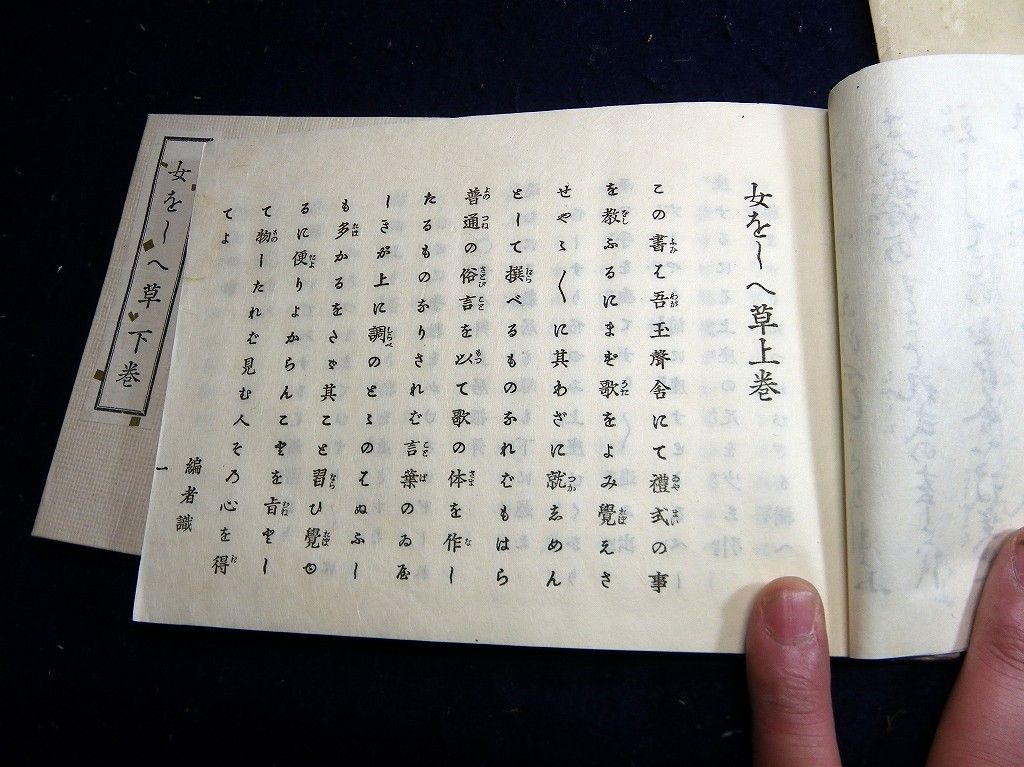 女をしへ草上巻
この書は吾玉聲舎にて禮式の事
を教ふるにまづ歌をよみ覺えさ
せやゝ〱に其わざに就志めん
とーて撰べるものなれむもはら
普通の俗言をもて歌の体を作ー
たるものなりされむ言葉のゐ屋
ーきが上に調のとゝのはぬふー
も多かるをさず其こと習ひ覺ゆ
るに便りよからんことを旨とー
て物ーたれむ見む人その心を得
てよ
編者識
一
女をしへ草下巻